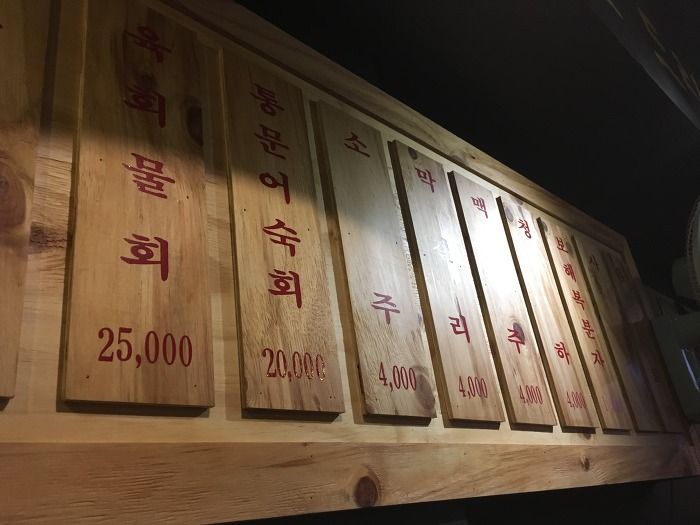 육회물회
25,000
통문어숙회
20,000
소주
4,000
막걸리
4,000
맥주
4,000
청하
4,000
보해복분자